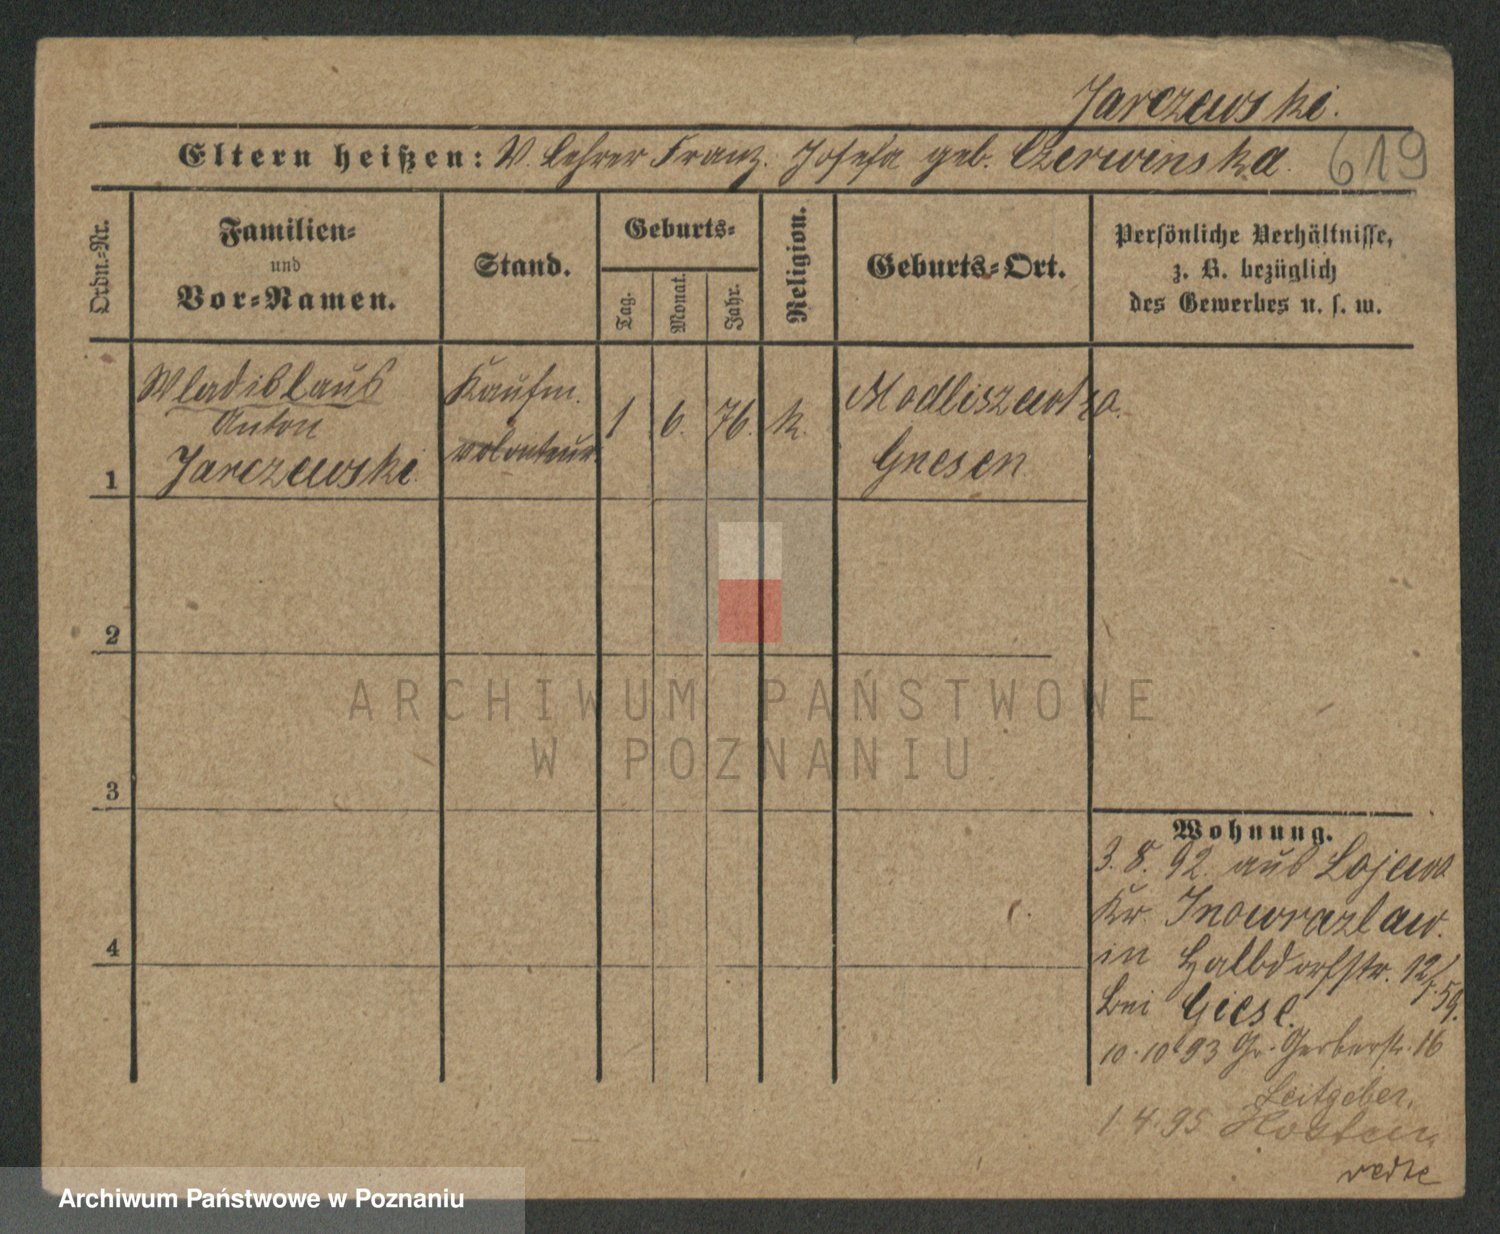 Jarczewski.
Eltern heißen: V. Lehrer Franz. Josefa geb. Czerwinska.
619
Ordn.-Nr.
Familien-
und
Vor-Namen.
Stand.
Geburts-
Tag.
Monat.
Jahr.
Religion.
Geburts-Ort.
Persönliche Verhältnisse,
z. B. bezüglich
des Gewerbes u. s. w.
1
Wladislaus
Anton
Jarczewski.
Kaufm.
volonteur.
1
6.
76.
k.
Modliszewko.
Gnesen
2
3
4
Wohnung.
3. 8. 92. aus Lojewo
Kr. Inowrazlaw.
in Halbdorfstr. 12/
bei Giese. 59.
10. 10 93 Gr. Gerberstr. 16
Leitgeber.
1 4 95
ARCHIWUM PAŃSTWOWE
W POZNANIU
Archiwum Państwowe w Poznaniu